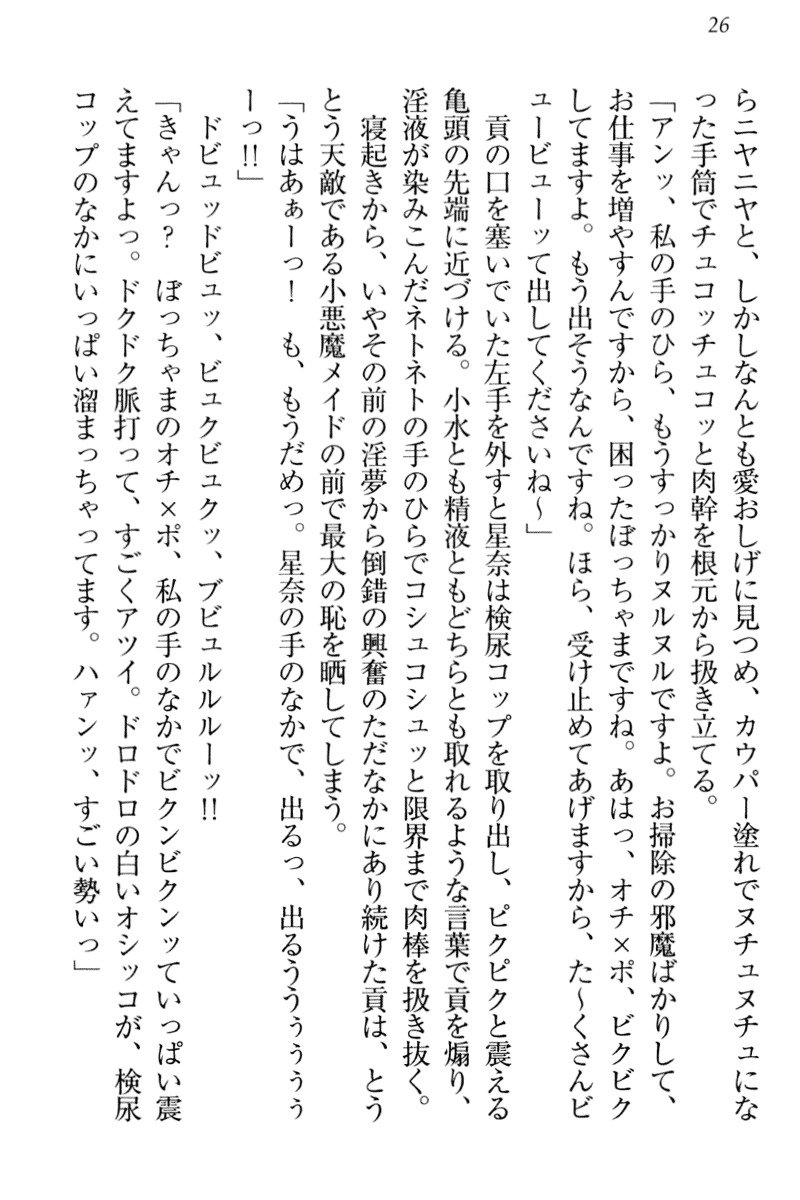 26
らニヤニヤと、しかしなんとも愛おしげに見つめ、カウパー塗れでヌチュヌチュにな
った手筒でチュコッチュコッと肉幹を根元から扱き立てる。
「アンッ、私の手のひら、もうすっかりヌルヌルですよ。お掃除の邪魔ばかりして、
お仕事を増やすんですから、困ったぼっちゃまですね。あはっ、オチ×ポ、ビクビク
してますよ。もう出そうなんですね。ほら、受け止めてあげますから、た〜くさんビ
ュービューッて出してくださいね〜」
貢の口を塞いでいた左手を外すと星奈は検尿コップを取り出し、ピクピクと震える
亀頭の先端に近づける。小水とも精液ともどちらとも取れるような言葉で貢を煽り、
淫液が染みこんだネトネトの手のひらでコシュコシュッと限界まで肉棒を扱き抜く。
寝起きから、いやその前の淫夢から倒錯の興奮のただなかにあり続けた貢は、とう
とう天敵である小悪魔メイドの前で最大の恥を晒してしまう。
「うはあぁーっ！　も、もうだめっ。星奈の手のなかで、出るっ、出るうううぅぅぅ
ーっ!!」
ドビュッドビュッ、ビュクビュクッ、ブビュルルルーッ!!
「きゃんっ？　ぼっちゃまのオチ×ポ、私の手のなかでビクンビクンッていっぱい震
えてますよっ。ドクドク脈打って、すごくアツイ。ドロドロの白いオシッコが、検尿
コップのなかにいっぱい溜まっちゃってます。ハァンッ、すごい勢いっ」